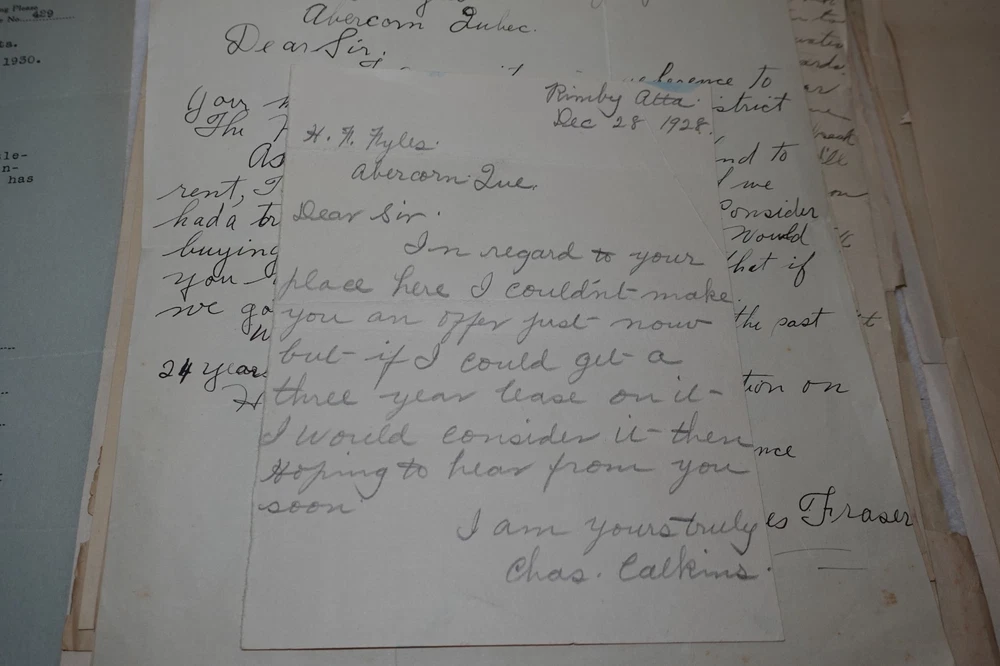 429
1930.
has
Abercorn Qubec.
Dear Sir.
reference to
Your
strict
The
As
nd to
rent,
we
had a
Consider
buying
Would
you
that if
we
the past
24 year
tion on
nce
es Fraser
Rimby Alta.
Dec 28 1928.
H. F. Nyles.
Abercorn Que.
Dear Sir.
In regard to your
place here I couldn't make
you an offer just now
but if I could get a
three year lease on it
I would consider it then
Hoping to hear from you
soon
I am yours truly
Chas. Calkins.